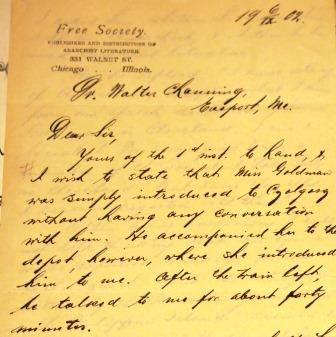 19 6/IX 02.
Free Society.
PUBLISHERS AND DISTRIBUTORS OF
ANARCHIST LITERATURE.
331 WALNUT ST.
Chicago . . Illinois.
Dr. Walter Channing,
Easport, Me.
Dear Sir,
Yours of the 1st inst. to hand, &
I wish to state that Miss Goldman
was simply introduced to Czolgosz
without having any conversation
with him. He accompanied her to the
depot, however, where she introduced
him to me. After the train left,
he talked to me for about forty
minutes.